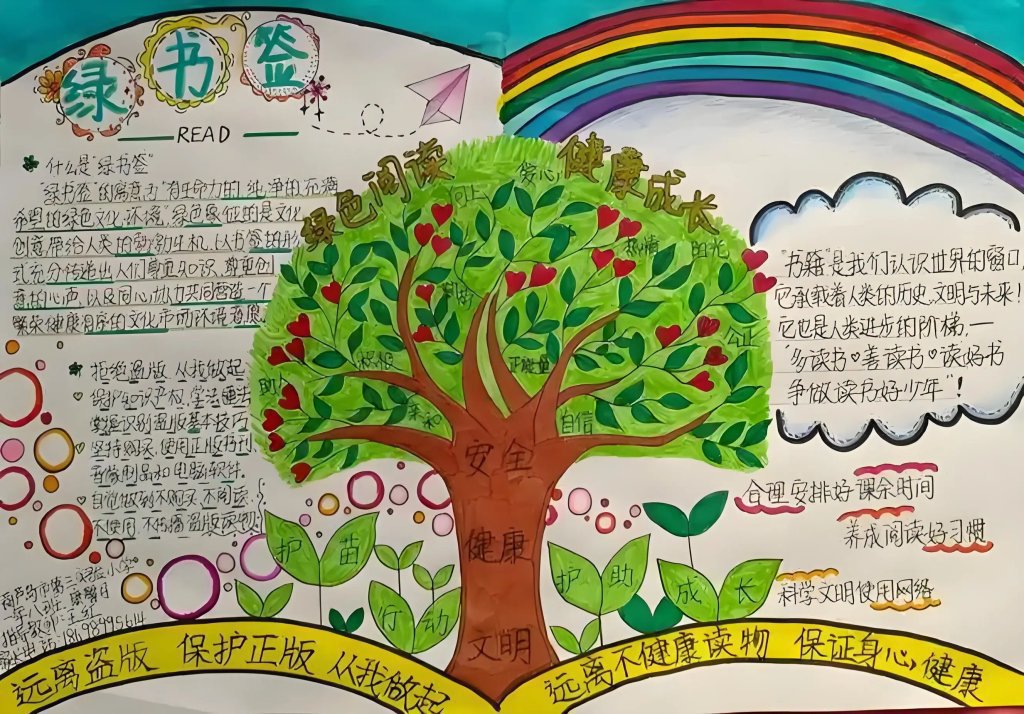 绿书签
READ
什么是"绿书签"
"绿书签"的寓意为"有生命力的,纯净的,充满
希望的绿色文化,环境,绿色象征的是文化
创意带给人类的勃勃生机,以书签的形
式充分传递出人们尊重知识、尊重创
造的心声,以及同心协力共同营造一个
繁荣健康有序的文化市场环境
拒绝盗版 从我做起
保护知识产权,学法
掌握识别盗版基本技巧
坚持购买、使用正版书刊
音像制品和电脑软件。
自觉做到不购买、不阅读、
不使用、不传播盗版读物
市第三实验小学
绿色阅读 健康成长
向上
爱心
热情
阳光
积极
正能量
公正
助人
亲和
自信
安全
健康
文明
护苗
行动
护助
成长
"书籍"是我们认识世界的窗口,
它承载着人类的历史、文明与未来!
它也是人类进步的阶梯,一
"多读书♥善读书♥读好书
争做读书好少年"!
合理安排好课余时间
养成阅读好习惯
科学文明使用网络
远离盗版 保护正版 从我做起
远离不健康读物 保证身心健康